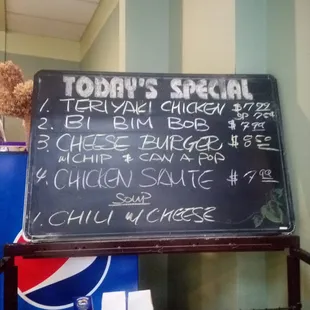 TODAY'S SPECIAL
1. TERIYAKI CHICKEN $7.99
2. BI BIM BOB $7.99
3 CHEESE BURGER $8.50
W/ CHIP & CAN A POP
4. CHICKEN SAUTE $7.99
SOUP
1. CHILI W/ CHEESE